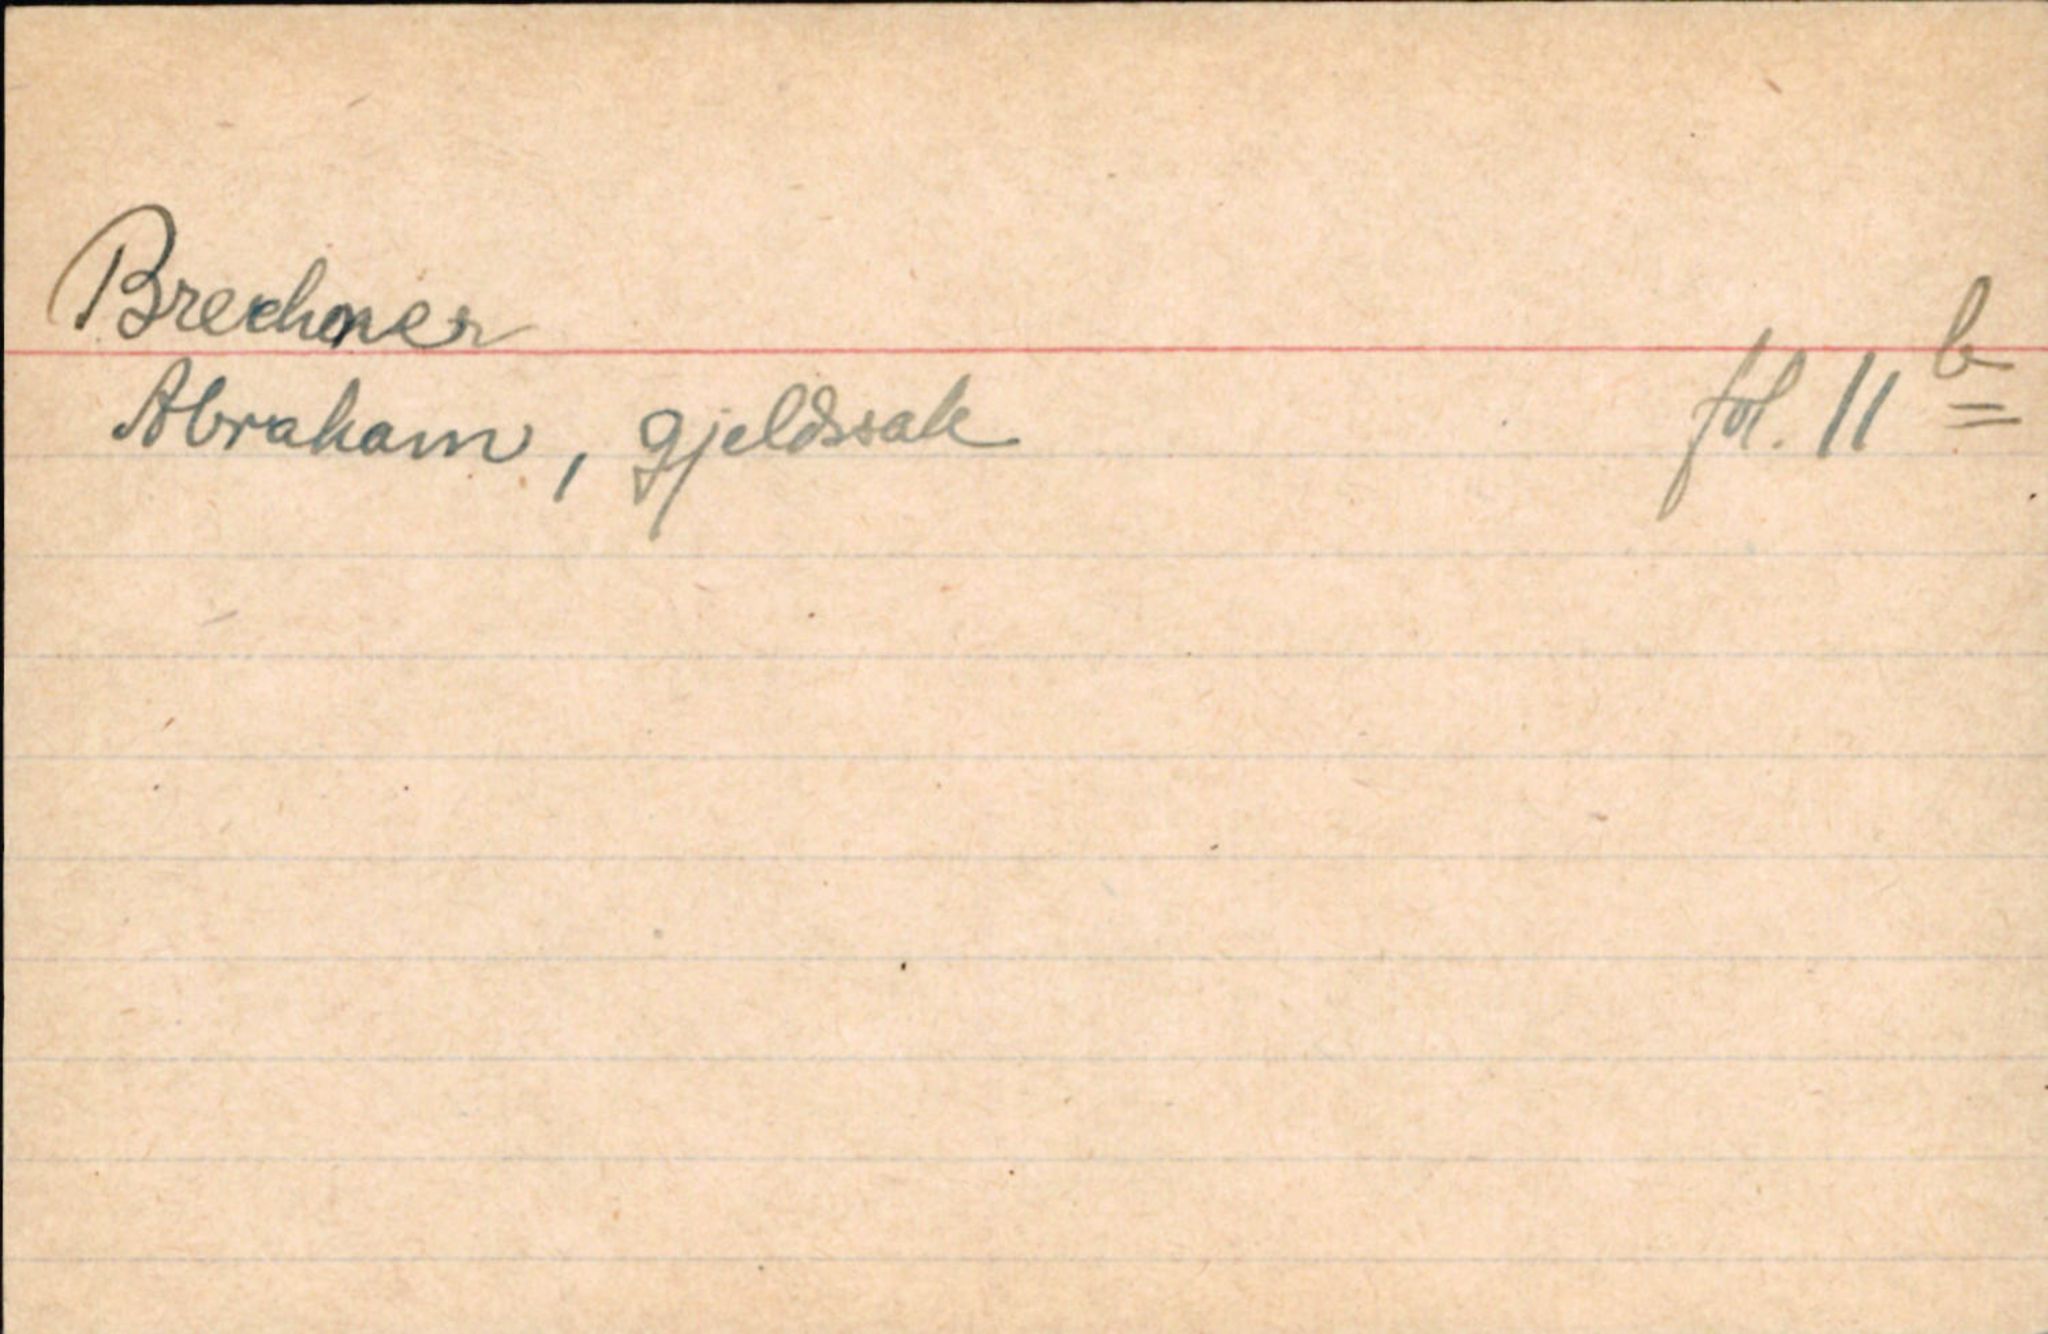 Brechner
Abraham, gjeldssak fol. 11 b